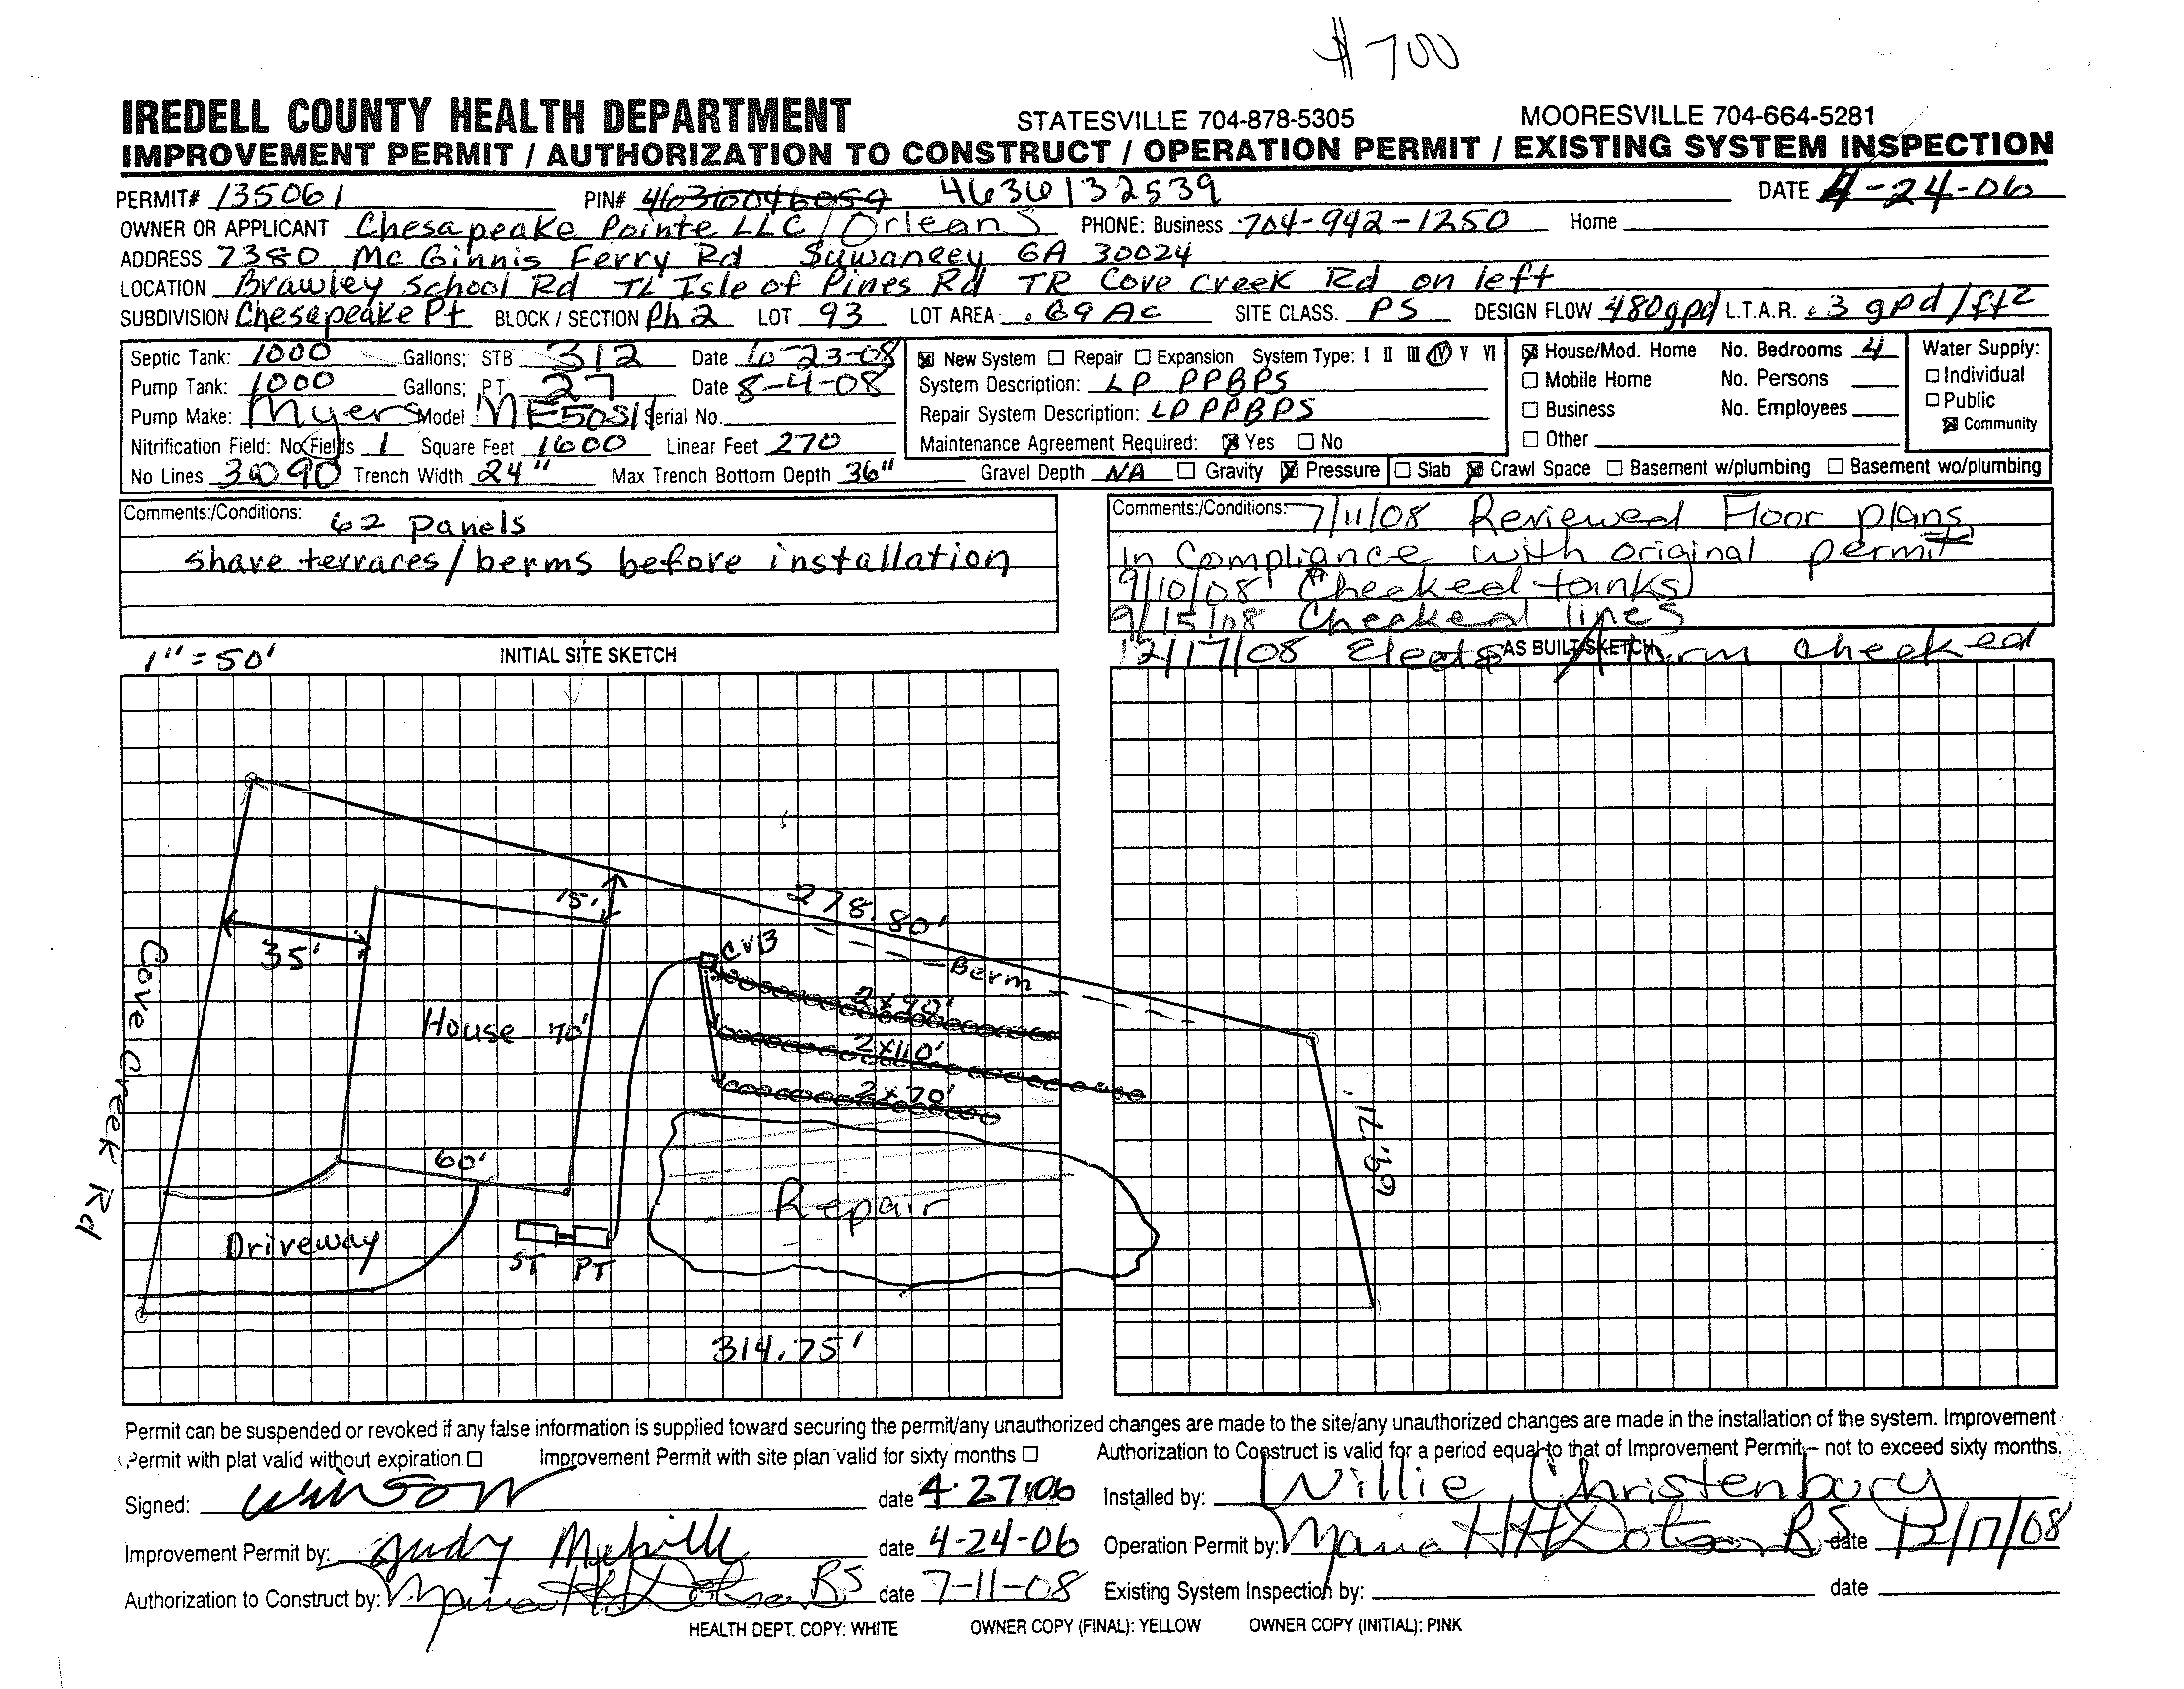 $700
IREDELL COUNTY HEALTH DEPARTMENT STATESVILLE 704-878-5305 MOORESVILLE 704-664-5281
IMPROVEMENT PERMIT / AUTHORIZATION TO CONSTRUCT / OPERATION PERMIT / EXISTING SYSTEM INSPECTION
PERMIT# 135061 PIN# 4636046059 4636132539 DATE 4-24-06
OWNER OR APPLICANT Chesapeake Pointe LLC / Orleans PHONE: Business 704-942-1250 Home
ADDRESS 7380 McGinnis Ferry Rd Suwaneey GA 30024
LOCATION Brawley School Rd TL Isle of Pines Rd TR Cove Creek Rd on left
SUBDIVISION Chesapeake Pt BLOCK / SECTION Ph 2 LOT 93 LOT AREA .69 Ac SITE CLASS. PS DESIGN FLOW 480gpd L.T.A.R. .3 gpd/ft2
Septic Tank: 1000 Gallons; STB 312 Date 6-23-08
Pump Tank: 1000 Gallons; PT 27 Date 8-4-08
Pump Make: Myers Model ME50S1 Serial No.
Nitrification Field: No Fields 1 Square Feet 1600 Linear Feet 270
No Lines 3@90 Trench Width 24" Max Trench Bottom Depth 36" Gravel Depth N/A Gravity Pressure Slab Crawl Space Basement w/plumbing Basement wo/plumbing
New System Repair Expansion System Type: I II III IV V VI
System Description: LP PPBPS
Repair System Description: LP PPBPS
Maintenance Agreement Required: Yes No
House/Mod. Home No. Bedrooms 4
Mobile Home No. Persons
Business No. Employees
Other
Water Supply:
Individual
Public
Community
Comments:/Conditions: 62 panels
shave terraces/berms before installation
Comments:/Conditions: 7/11/08 Reviewed Floor plans
In Compliance with original permit
9/10/08 Checked tanks
9/15/08 Checked lines
12/17/08 Elects Alarm checked
1"=50' INITIAL SITE SKETCH AS BUILT SKETCH
15'
278.80'
35'
CVB
Berm
2x90'
House 70'
2x110'
2x70'
Cove Creek Rd
69.71'
60'
Repair
Driveway
ST PT
314.75'
Permit can be suspended or revoked if any false information is supplied toward securing the permit/any unauthorized changes are made to the site/any unauthorized changes are made in the installation of the system. Improvement
Permit with plat valid without expiration Improvement Permit with site plan valid for sixty months Authorization to Construct is valid for a period equal to that of Improvement Permit - not to exceed sixty months.
Signed: date 4-27-06 Installed by: Willie Christenbury
Improvement Permit by: Judy Melville date 4-24-06 Operation Permit by: Maria H Dotson RS date 12/17/08
Authorization to Construct by: Maria H Dotson RS date 7-11-08 Existing System Inspection by: date
HEALTH DEPT. COPY: WHITE OWNER COPY (FINAL): YELLOW OWNER COPY (INITIAL): PINK